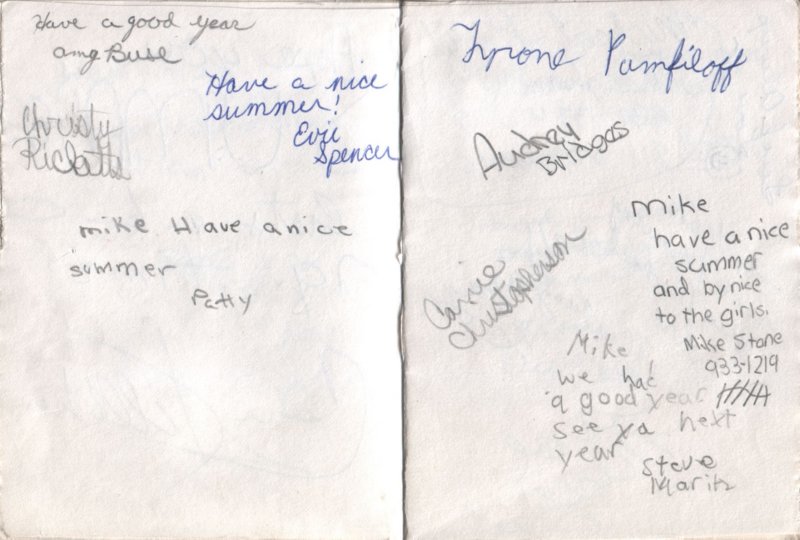 Have a good year
amy Buse
Have a nice
summer!
Evji
Spencer
Christy
Ricketts
mike Have a nice
summer
Patty
Tyrone Pamfiloff
Audrey
Bridges
mike
have a nice
summer
and by nice
to the girls.
Mike Stone
933-1219
Carrie
Christopherson
Mike
we had
a good year
see ya next
year
Steve
Maritz